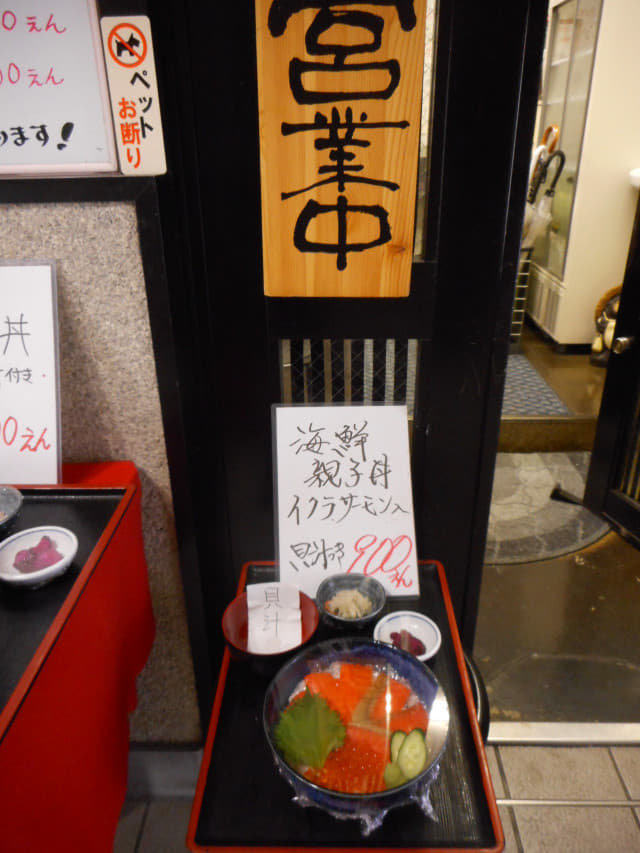 0えん
00えん
ります!
ペット
お断り
営業中
丼
付き
00えん
海鮮
親子丼
イクラ、サーモン入
貝汁つき 900えん
貝汁